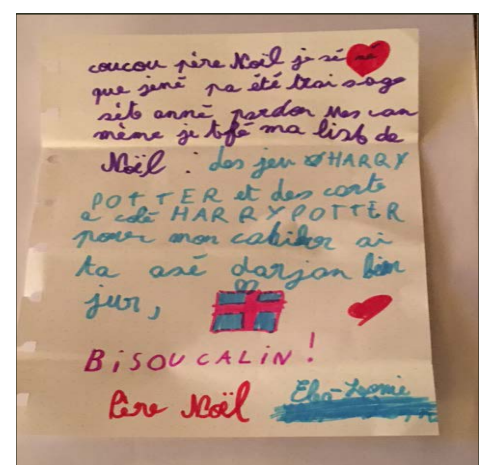 coucou père Noël je sé
que jené pa été trai sage
sèt anné pardon mes can
même je tefé ma list de
Noël : des jeu HARRY
POTTER et des carte
a colé HARRY POTTER
pour mon cahier si
ta asé darjan bien
sur,
BiSOU CALiN !
Père Noël Eléa-Leonie